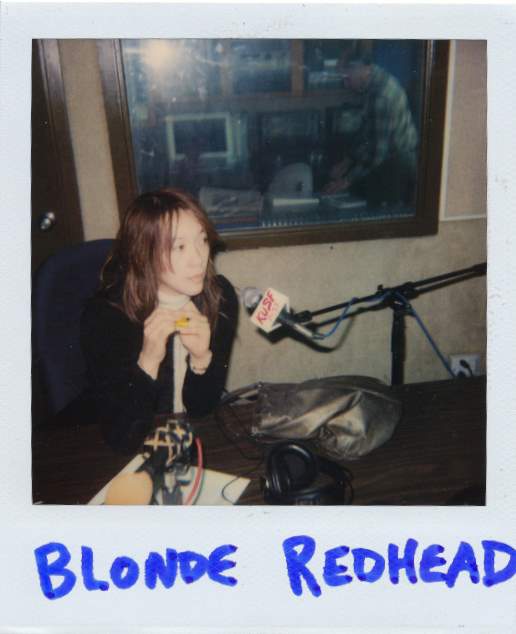 KUSF
BLONDE REDHEAD